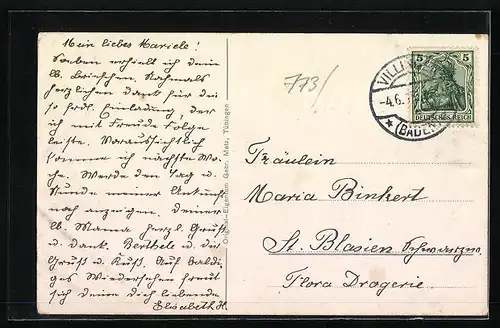 Mein liebes Mariele!
Soeben erhielt ich dein
lb. Briefchen. Nochmals
herzlichen Dank für dei
so frdl. Einladung der
ich mit Freude Folge
leiste. Voraussichtlich
komme ich nächste Wo-
che. Werde den Tag u.
Stunde meiner Ankunft
noch anzeigen. Deiner
lb. Mama herzl. Gruß
u. Dank. Berthele u. dir
Gruß u. Kuß. Auf baldi-
ges Wiedersehen freut
sich deine dich liebende
Elisabeth H.
Original-Eigentum Gebr. Metz, Tübingen
773/
VILLI
-4.6.
*(BADEN)
5 5
DEUTSCHES REICH
Fräulein
Maria Binkert
St. Blasien Schwarzw.
Flora Drogerie